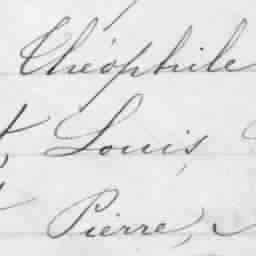 Théophile
Louis
Pierre,